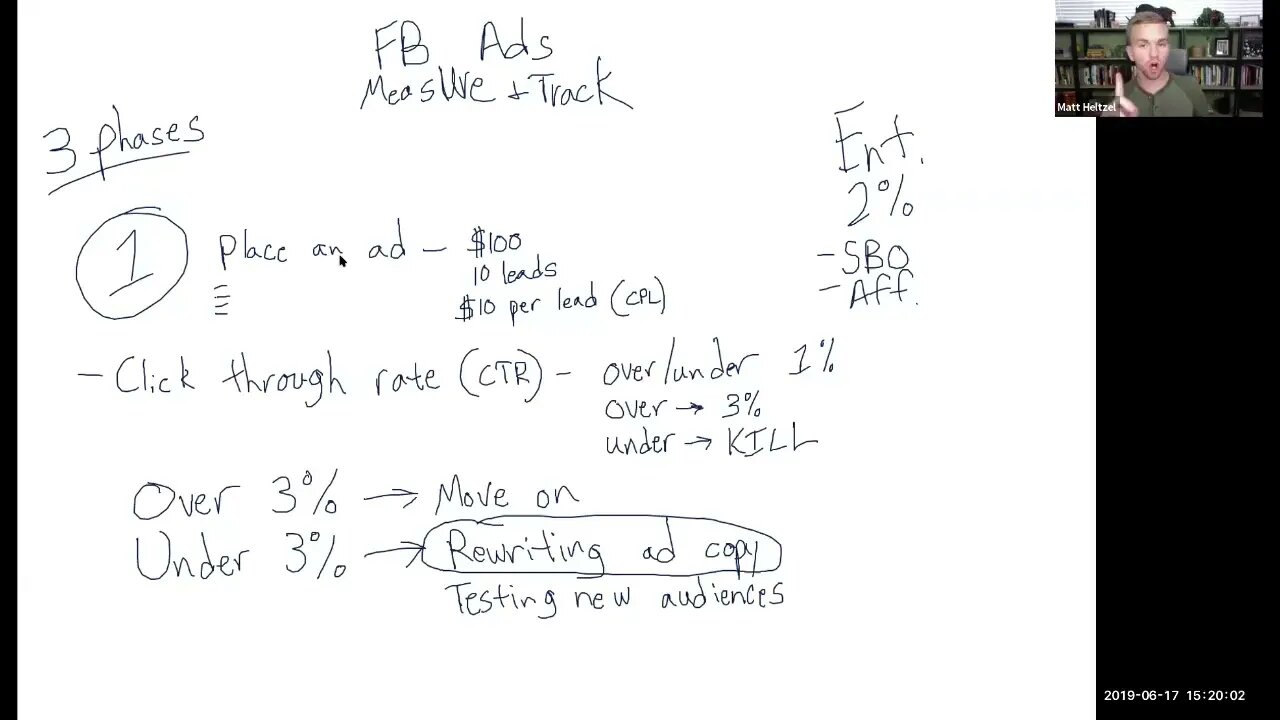 FB Ads
Measure + Track
3 phases
1 Place an ad - $100
10 leads
$10 per lead (CPL)
- Click through rate (CTR) - over/under 1%
over → 3%
under → KILL
Over 3% → Move on
Under 3% → Rewriting ad copy
Testing new audiences
Ent.
2%
- SBO
- Aff.
Matt Heltzel
2019-06-17 15:20:02